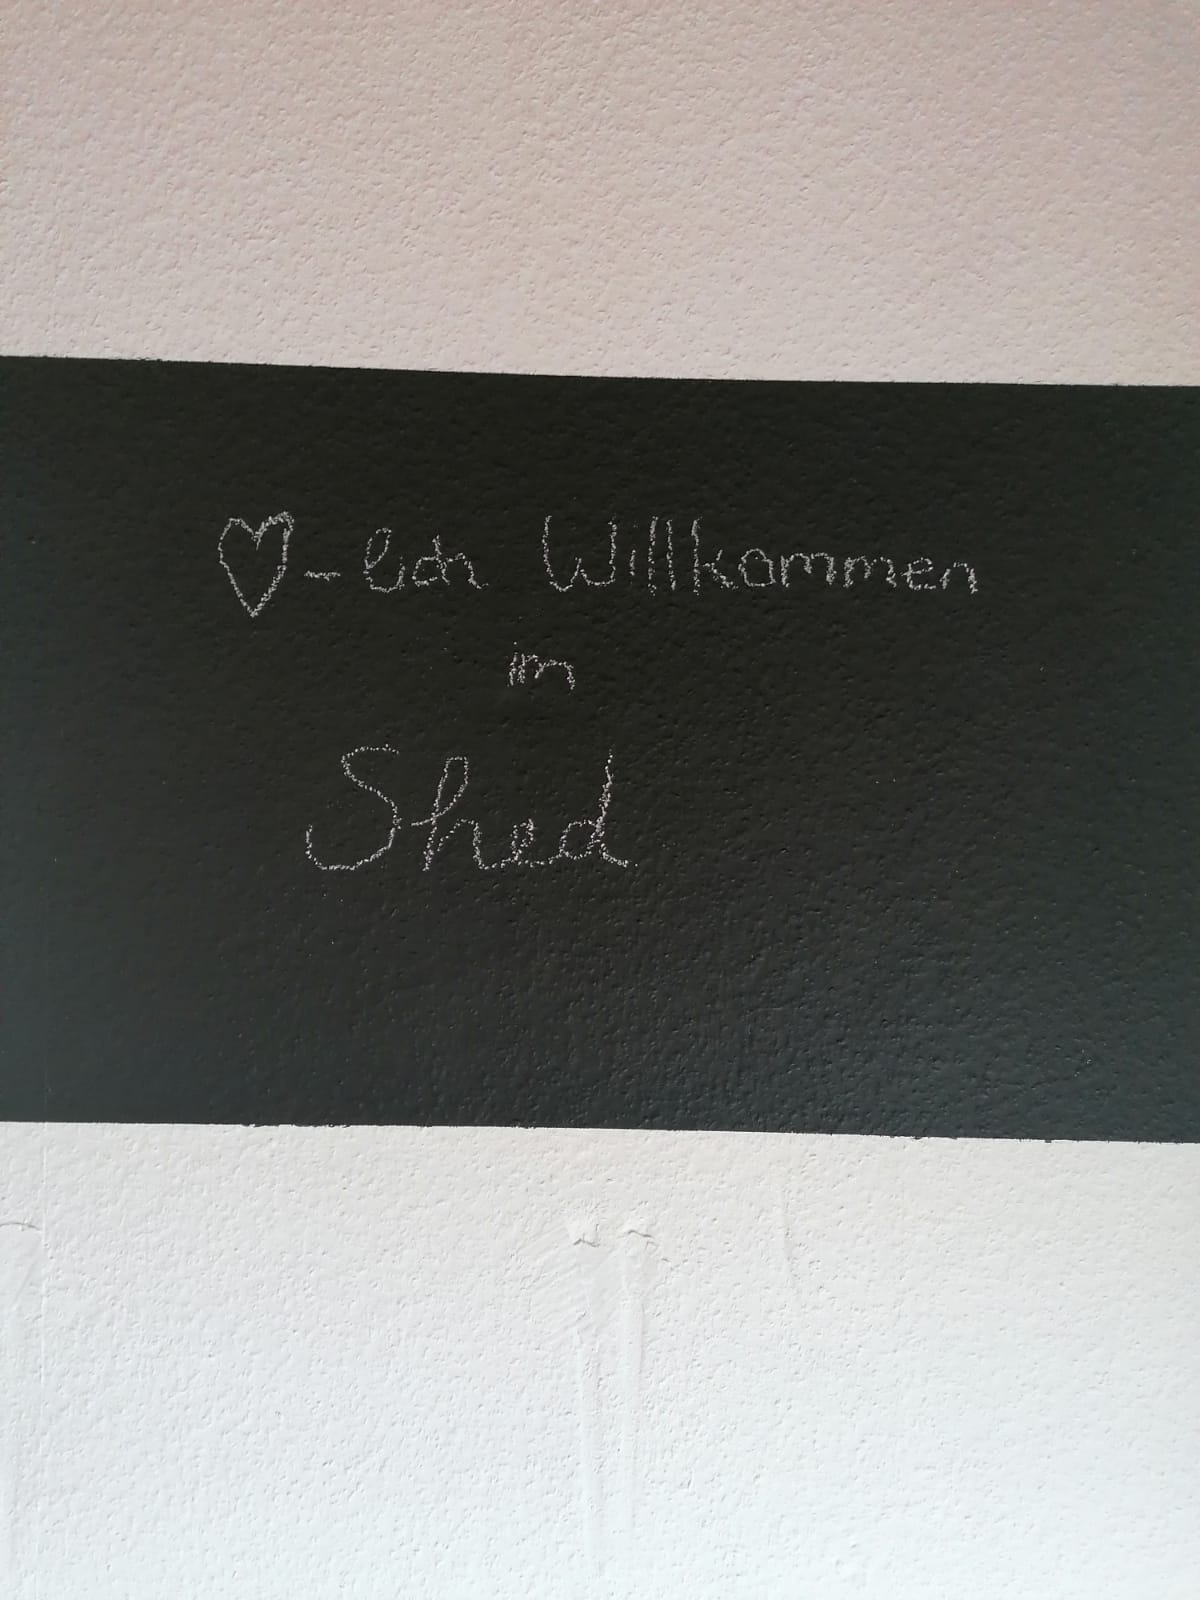 ♡-lich Willkommen
im
Shed